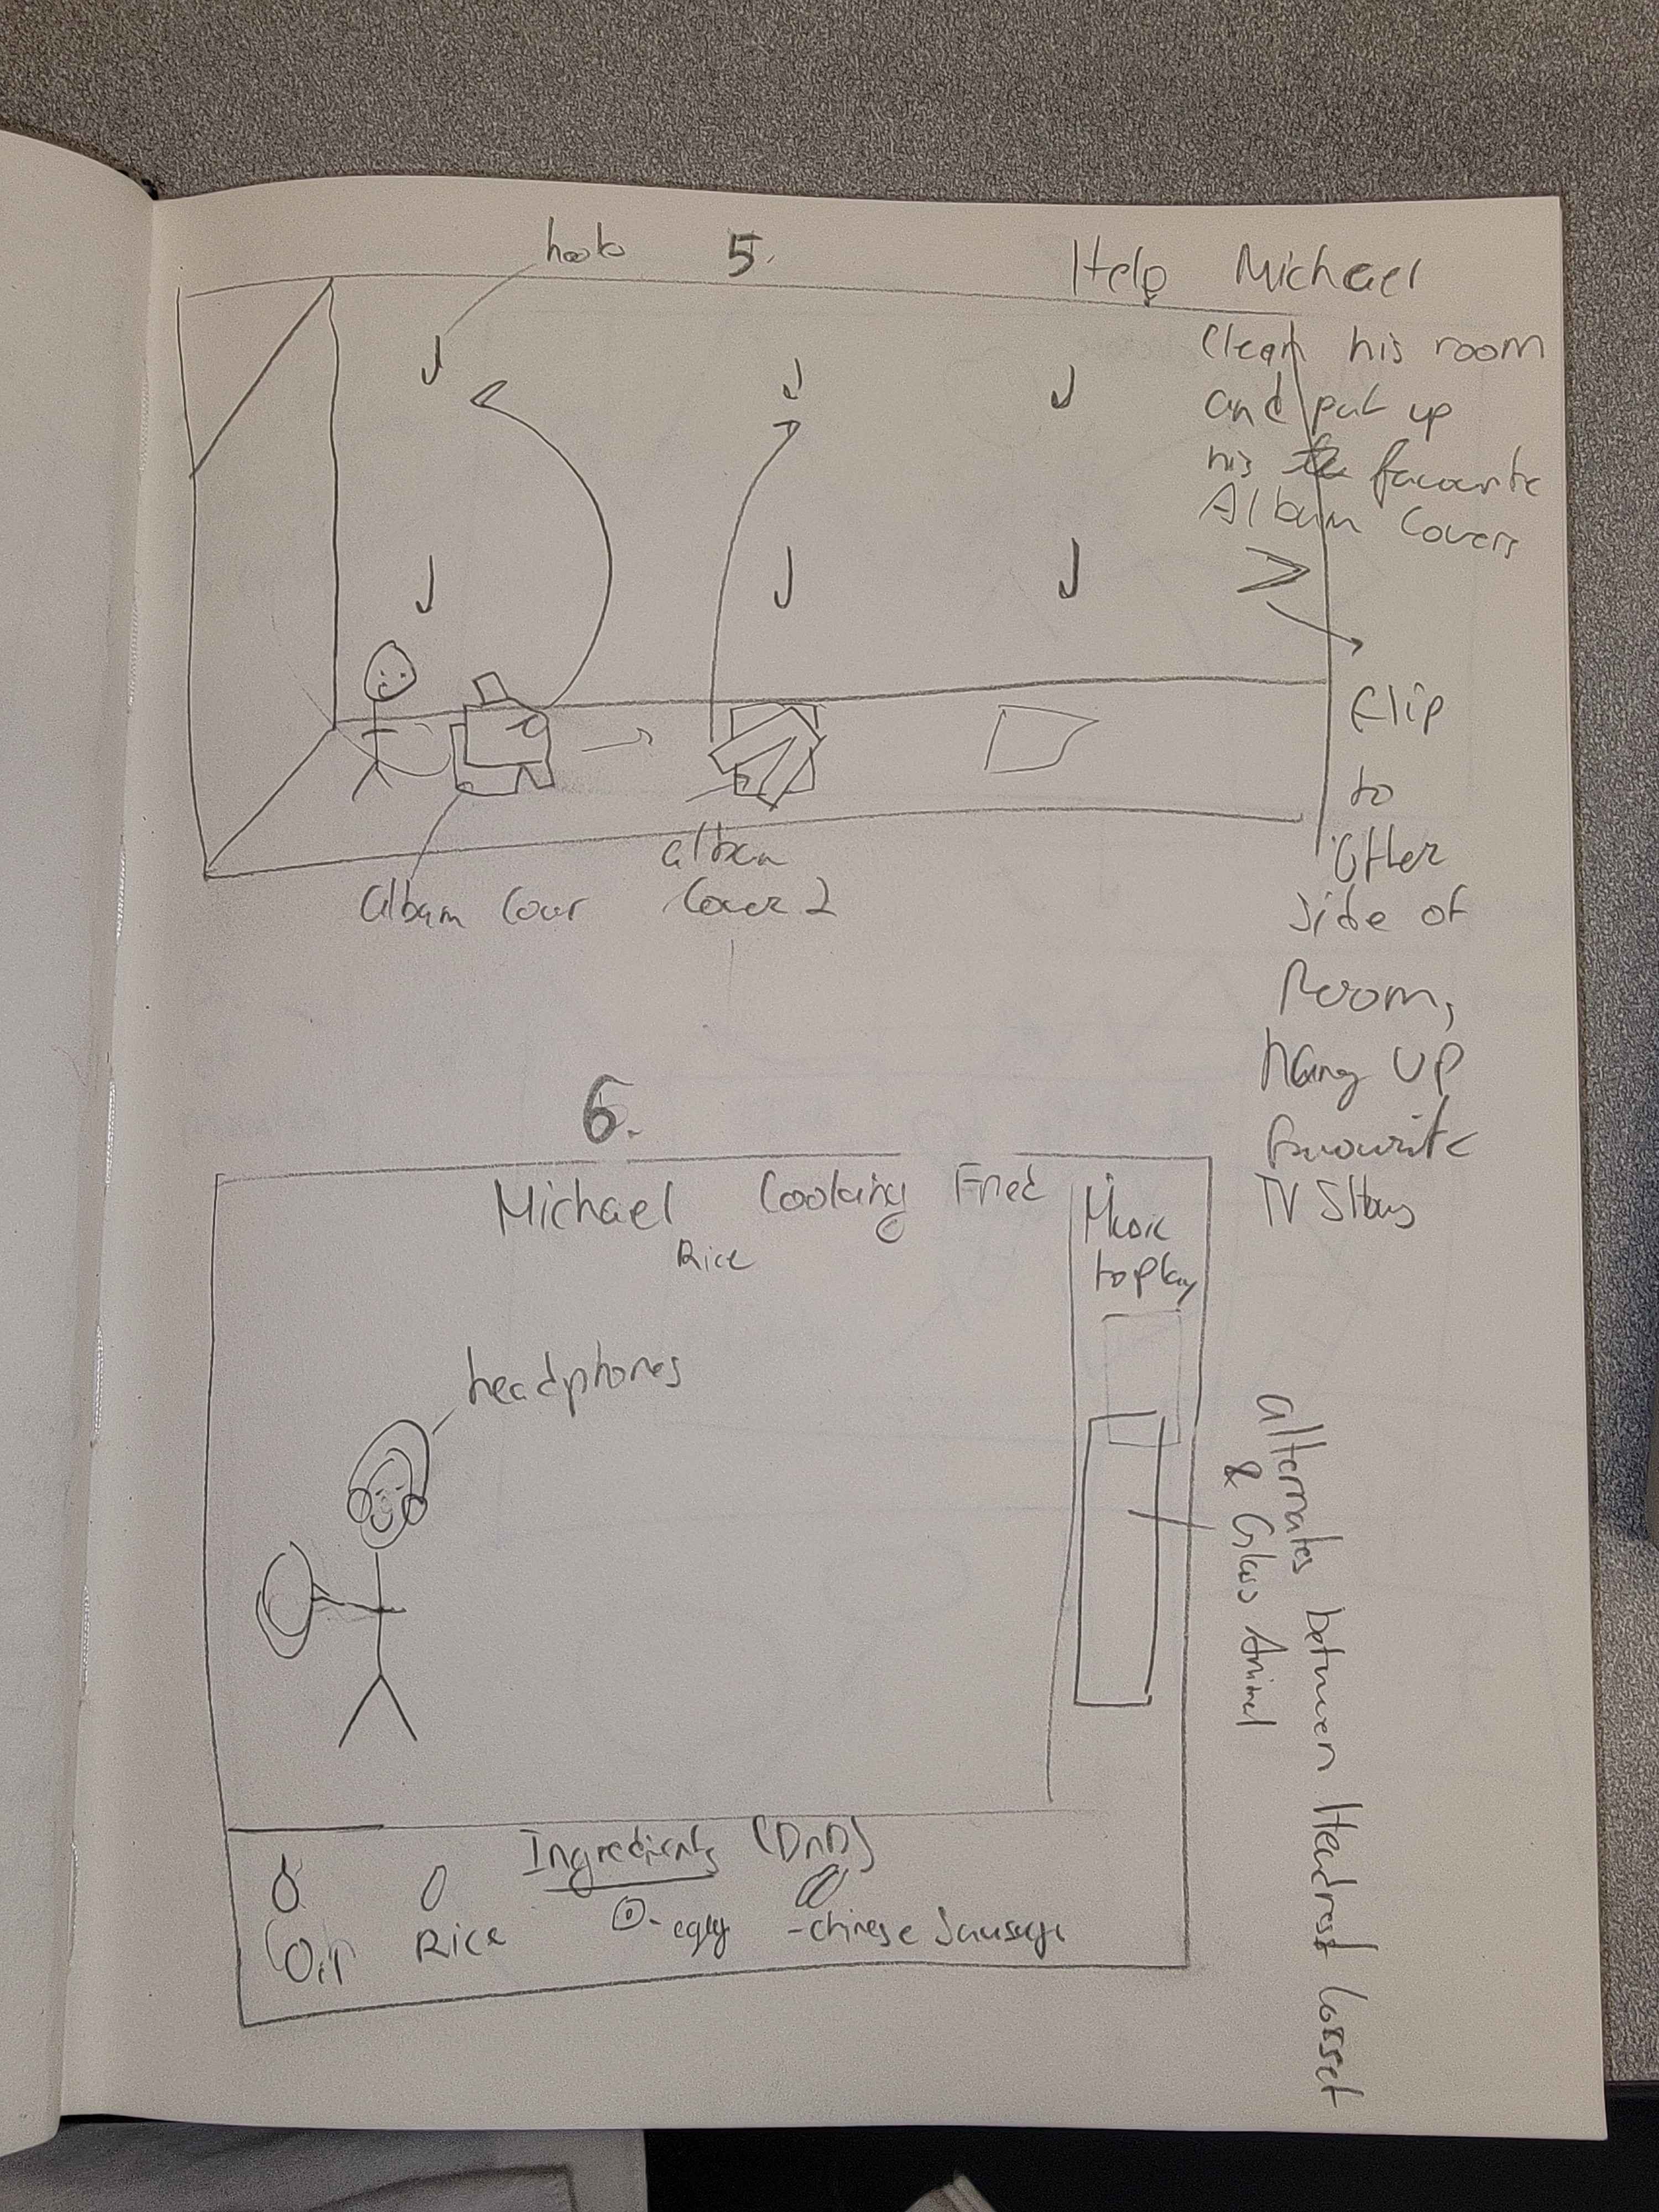 hook
5.
Help Michael
Clean his room
and put up
his favourite
Album Covers
Flip
to
other
side of
Room,
hang up
favourite
TV Shows
album
Album Cover
Cover 2
6.
Michael Cooking Fried
Rice
Music
to play
headphones
alternates between Headrest
& Glass Animal
Ingredients (DnD)
Oil
Rice
- egg
- Chinese Sausage